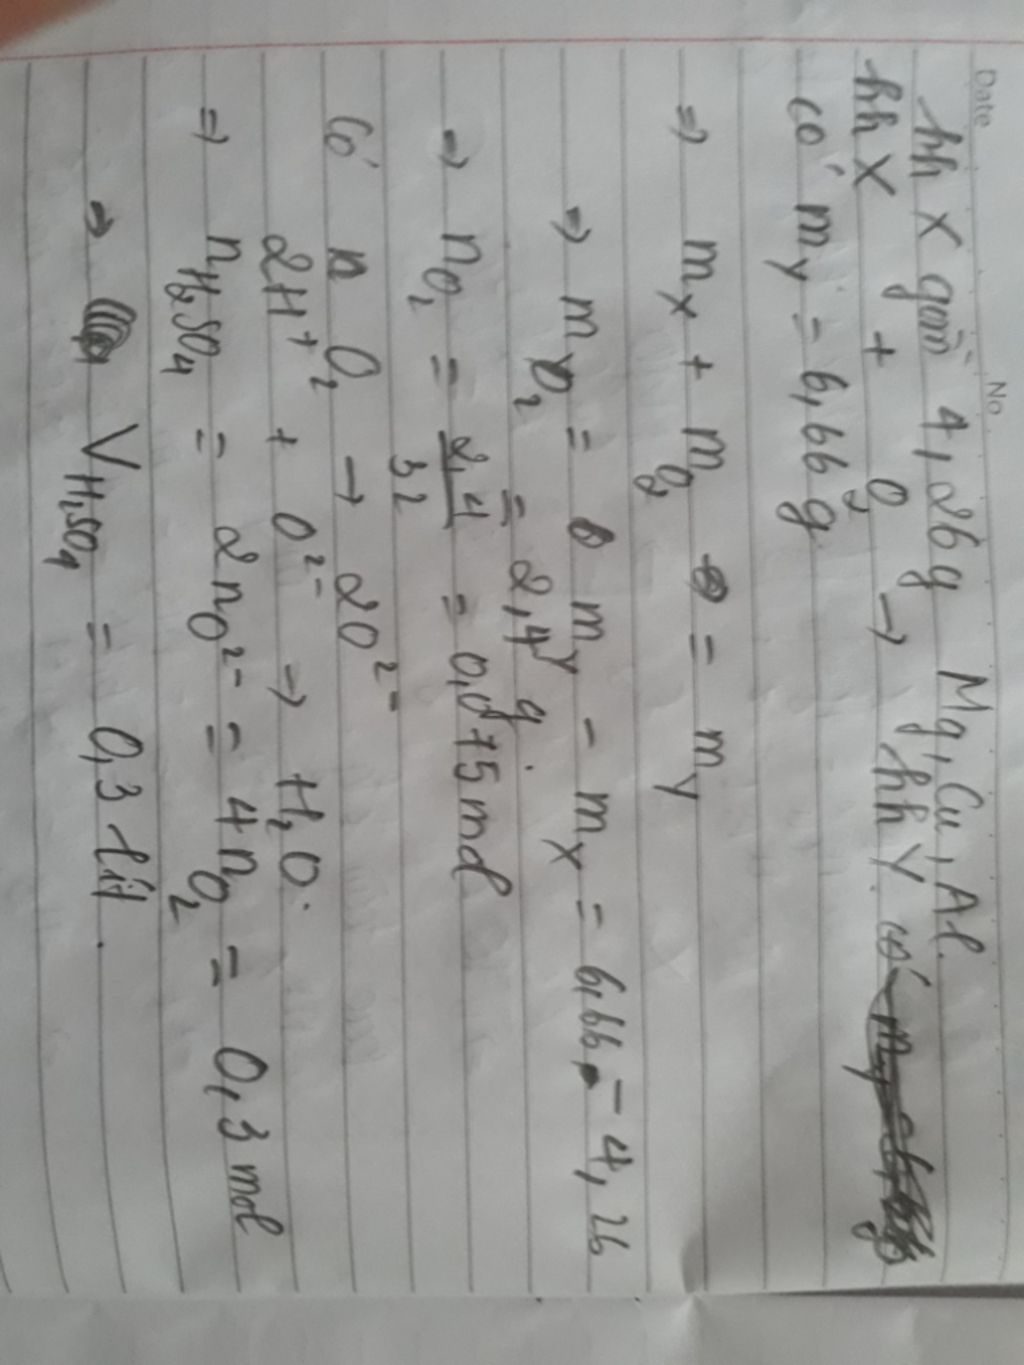 Date No
hh X gồm 4,26g Mg, Cu, Al.
hh X + O2 → hh Y có
có mY = 6,66 g.
⇒ mX + mO2 = mY
⇒ mO2 = mY - mX = 6,66 - 4,26
= 2,4 g.
⇒ nO2 = 2,4/32 = 0,075 mol
Có n O2 → 2O²⁻
2H⁺ + O²⁻ → H2O.
⇒ nH2SO4 = 2nO²⁻ = 4nO2 = 0,3 mol
⇒ VH2SO4 = 0,3 lít.